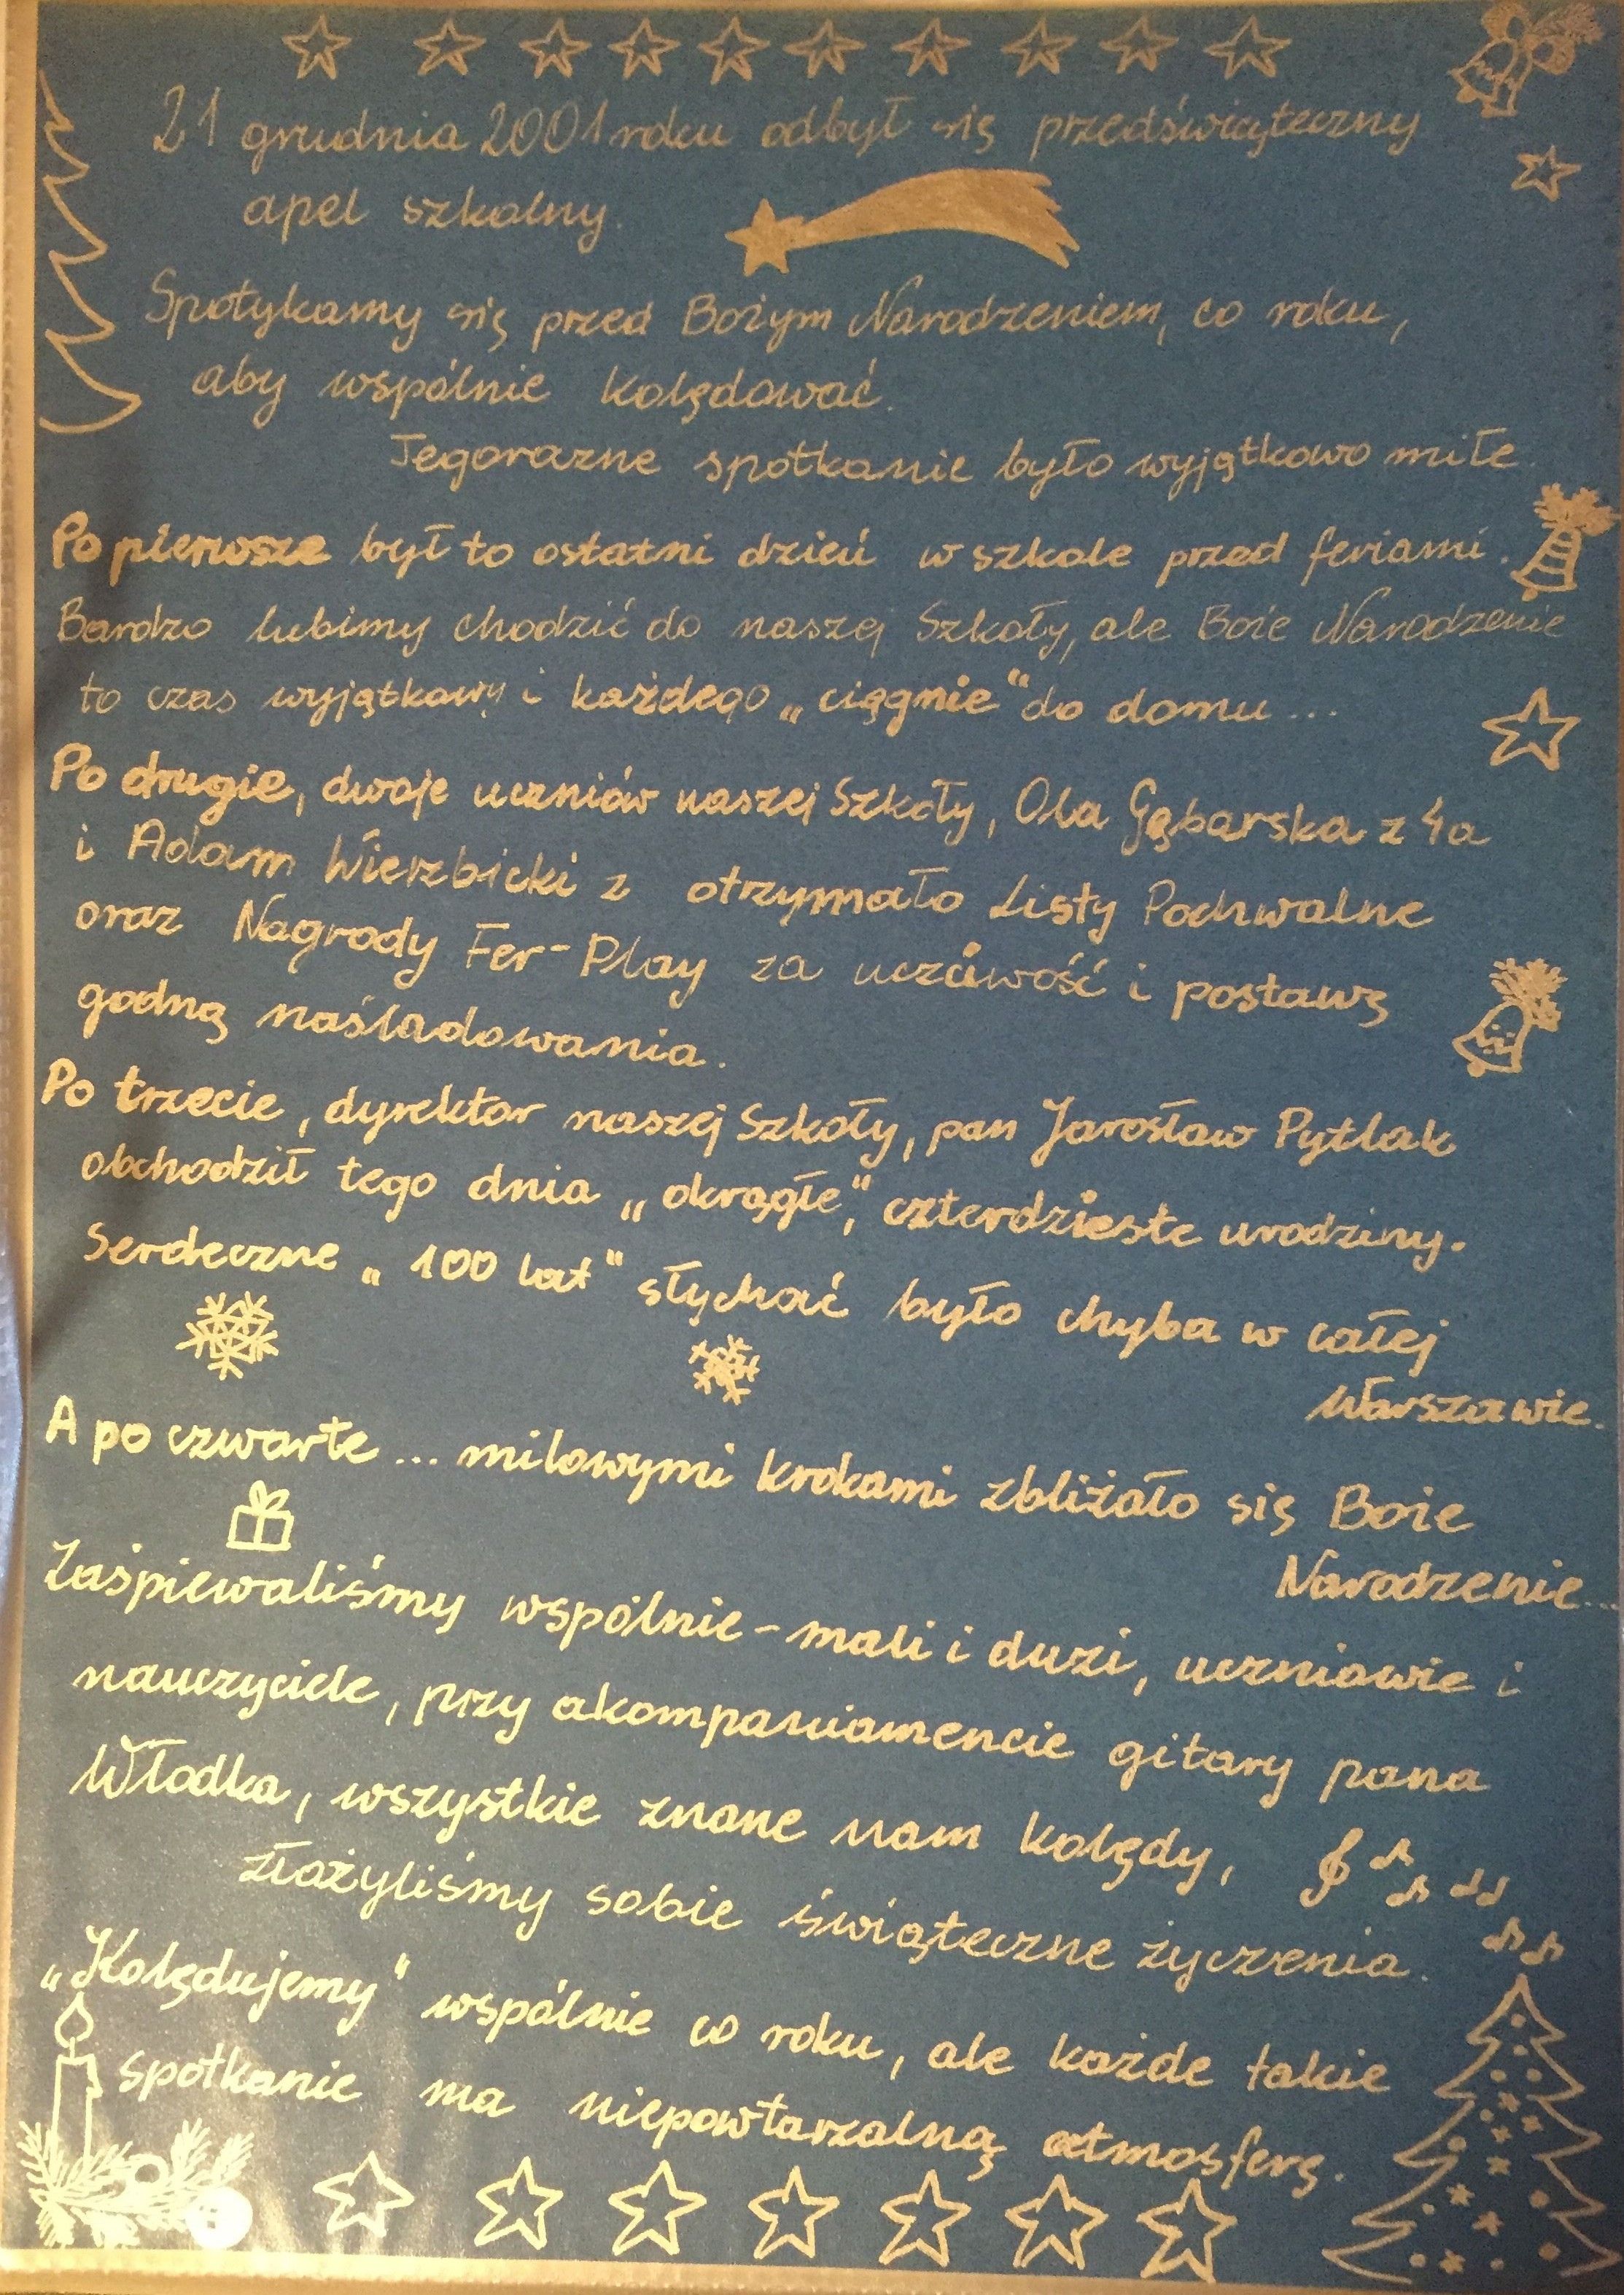 21 grudnia 2001 roku odbył się przedświąteczny
apel szkolny.
Spotykamy się przed Bożym Narodzeniem, co roku,
aby wspólnie kolędować.
Tegorazne spotkanie było wyjątkowo miłe.
Po pierwsze był to ostatni dzień w szkole przed feriami.
Bardzo lubimy chodzić do naszej Szkoły, ale Boże Narodzenie
to czas wyjątkowy i każdego „ciągnie" do domu...
Po drugie, dwoje uczniów naszej Szkoły, Ola Gębarska z 4a
i Adam Wierzbicki z otrzymało Listy Pochwalne
oraz Nagrody Fer-Play za uczciwość i postawę
godną naśladowania.
Po trzecie, dyrektor naszej Szkoły, pan Jarosław Pytlak
obchodził tego dnia „okrągłe", czterdzieste urodziny.
Serdeczne „100 lat" słychać było chyba w całej
Warszawie.
A po czwarte... milowymi krokami zbliżało się Boże
Narodzenie...
Zaśpiewaliśmy wspólnie - mali i duzi, uczniowie i
nauczyciele, przy akompaniamencie gitary pana
Włodka, wszystkie znane nam kolędy,
złożyliśmy sobie świąteczne życzenia.
„Kolędujemy" wspólnie co roku, ale każde takie
spotkanie ma niepowtarzalną atmosferę.